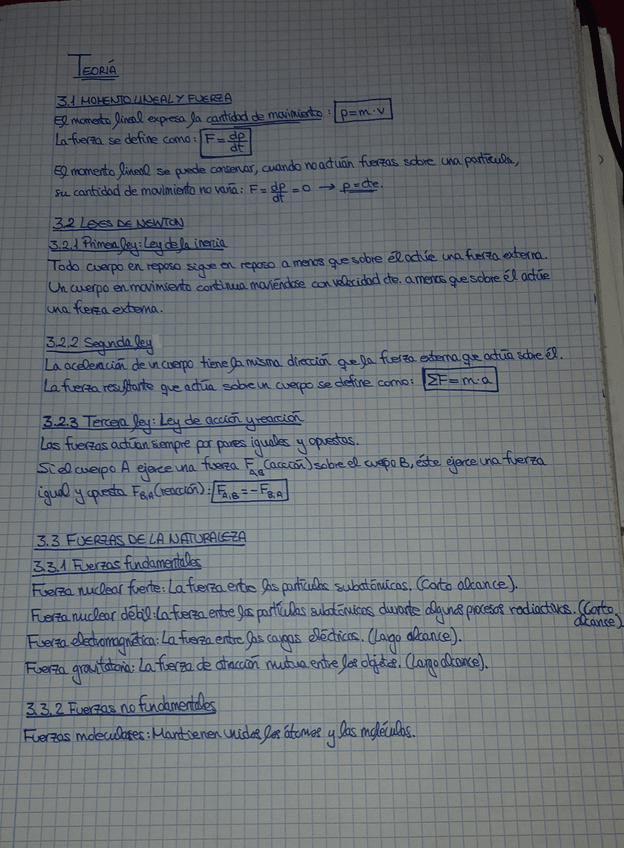 TEORÍA
3.1 MOMENTO LINEAL Y FUERZA
El momento lineal expresa la cantidad de movimiento: p=m·v
La fuerza se define como: F = dp/dt
El momento lineal se puede conservar, cuando no actúan fuerzas sobre una partícula,
su cantidad de movimiento no varía: F = dp/dt = 0 → p=cte.
3.2 LEYES DE NEWTON
3.2.1 Primera ley: Ley de la inercia
Todo cuerpo en reposo sigue en reposo a menos que sobre él actúe una fuerza externa.
Un cuerpo en movimiento continua moviéndose con velocidad cte. a menos que sobre él actúe
una fuerza externa.
3.2.2 Segunda ley
La aceleración de un cuerpo tiene la misma dirección que la fuerza externa que actúa sobre él.
La fuerza resultante que actúa sobre un cuerpo se define como: ΣF=m·a
3.2.3 Tercera ley: Ley de acción y reacción
Las fuerzas actúan siempre por pares iguales y opuestas.
Si el cuerpo A ejerce una fuerza F A,B (acción) sobre el cuerpo B, éste ejerce una fuerza
igual y opuesta F B,A (reacción): F A,B = -F B,A
3.3 FUERZAS DE LA NATURALEZA
3.3.1 Fuerzas fundamentales
Fuerza nuclear fuerte: La fuerza entre las partículas subatómicas. (Corto alcance).
Fuerza nuclear débil: La fuerza entre las partículas subatómicas durante algunos procesos radiactivos. (Corto
alcance)
Fuerza electromagnética: La fuerza entre las cargas eléctricas. (Largo alcance).
Fuerza gravitatoria: La fuerza de atracción mutua entre los objetos. (Largo alcance).
3.3.2 Fuerzas no fundamentales
Fuerzas moleculares: Mantienen unidos los átomos y las moléculas.